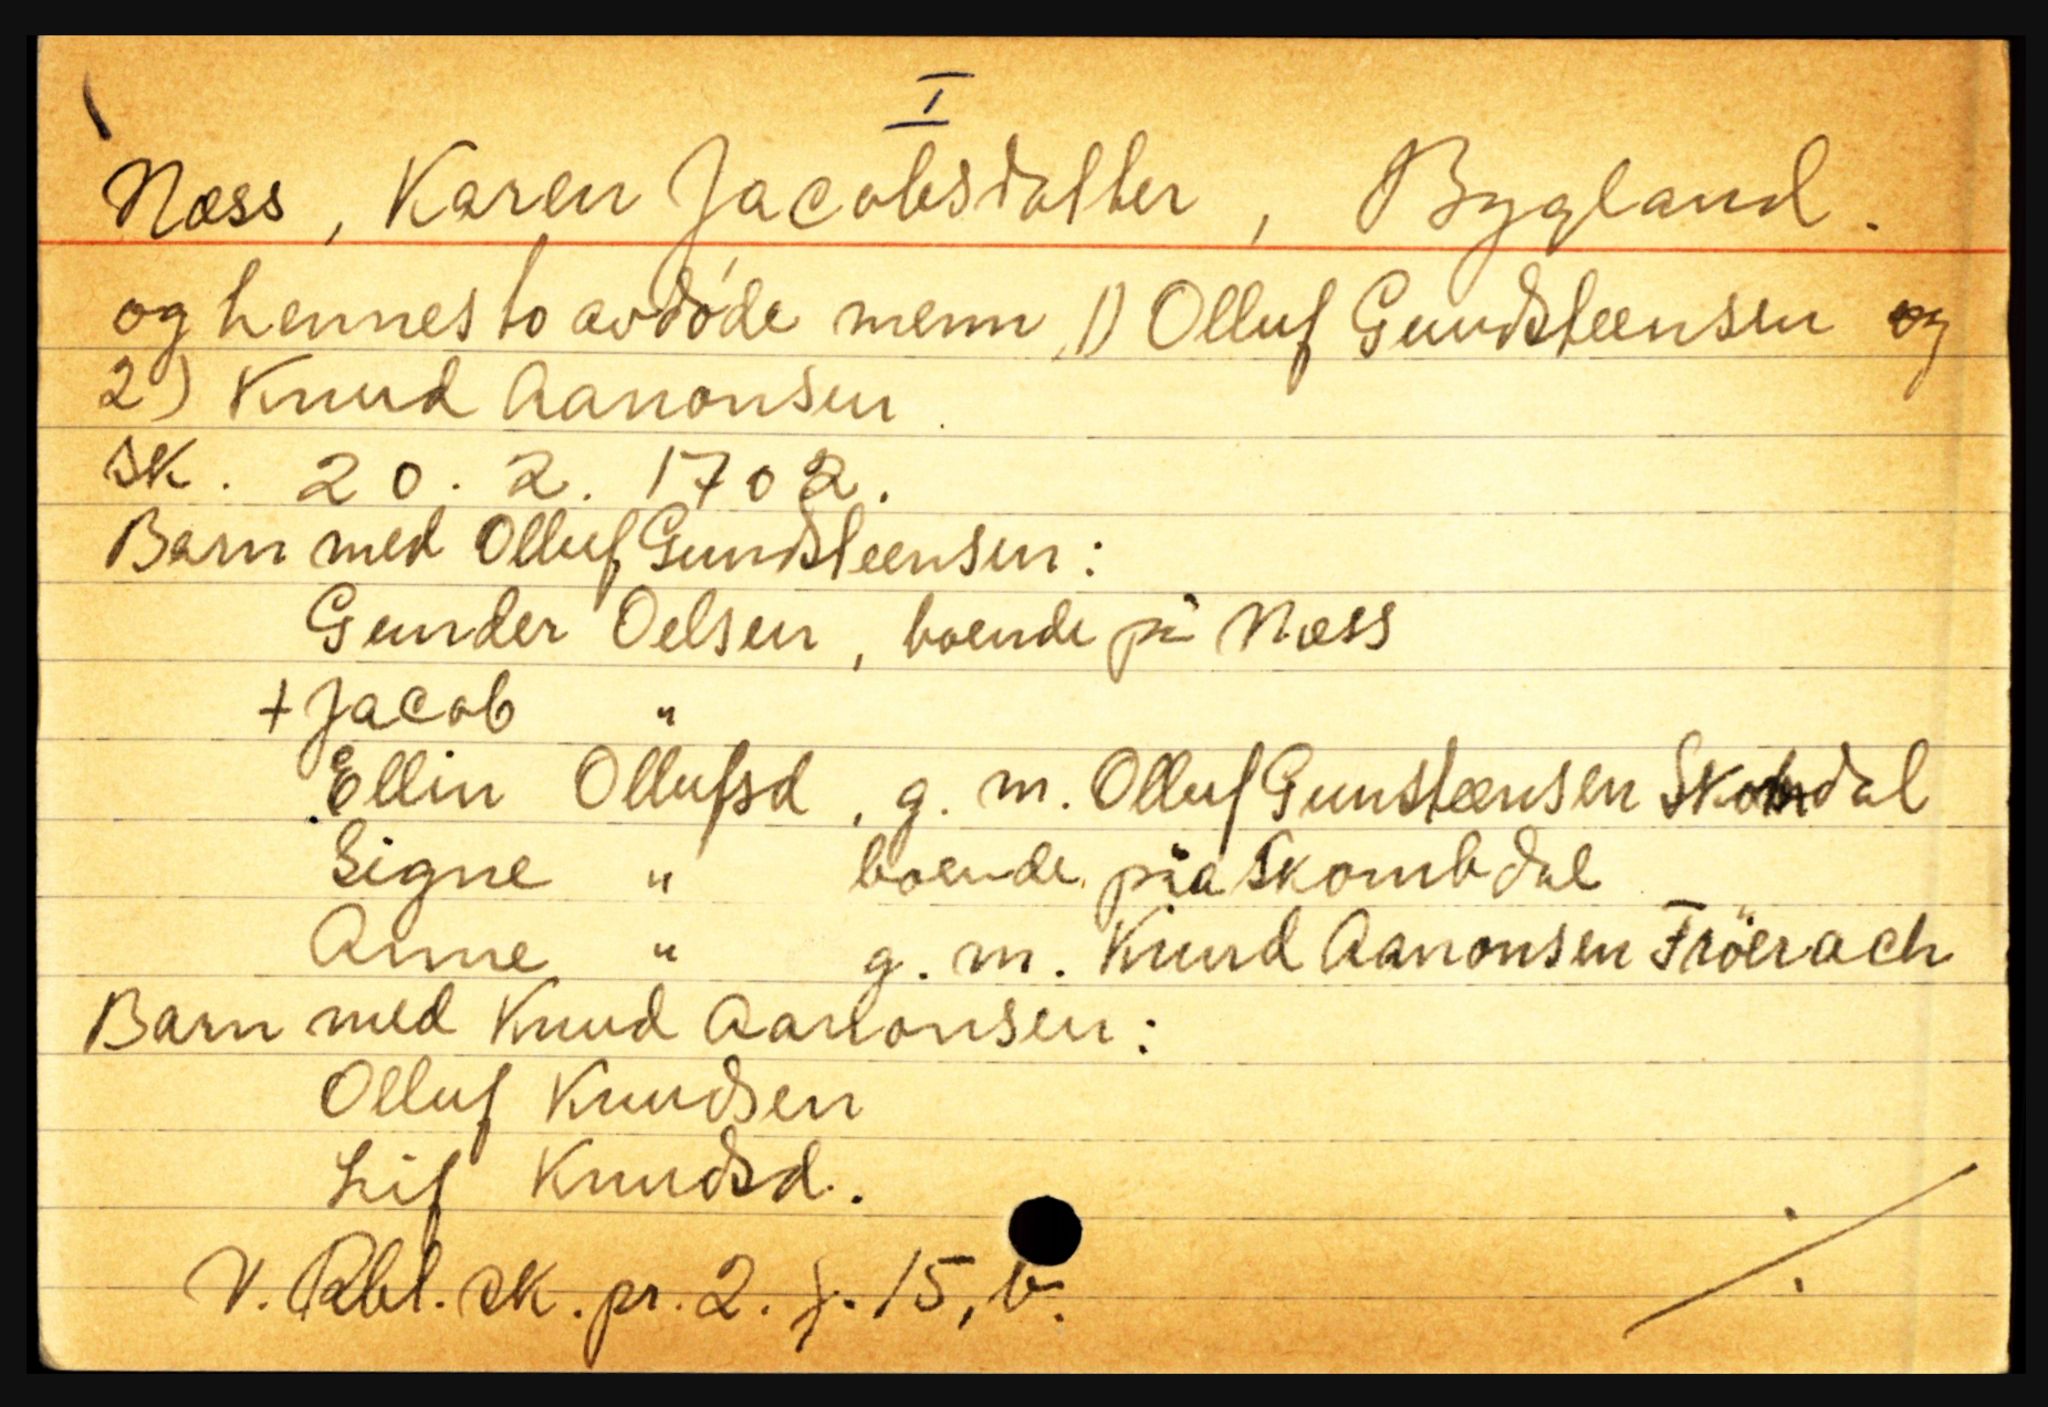 I
Næss, Karen Jacobsdatter, Bygland.
og hennes to avdøde menn, 1) Olluf Gundsteensen og
2) Knud Aanonsen.
sk. 20. 2. 1702.
Barn med Olluf Gundsteensen:
Gunder Oelsen, boende på Næss
+ Jacob "
Ellin Ollufsd, g. m. Olluf Gunsteensen Skomdal
Signe " boende på Skombdal
Anne " g. m. Knud Aanonsen Fröerach
Barn med Knud Aanonsen:
Olluf Knudsen
Lif Knudsd.
V. Rbl. sk. pr. 2. f. 15, b.
./.